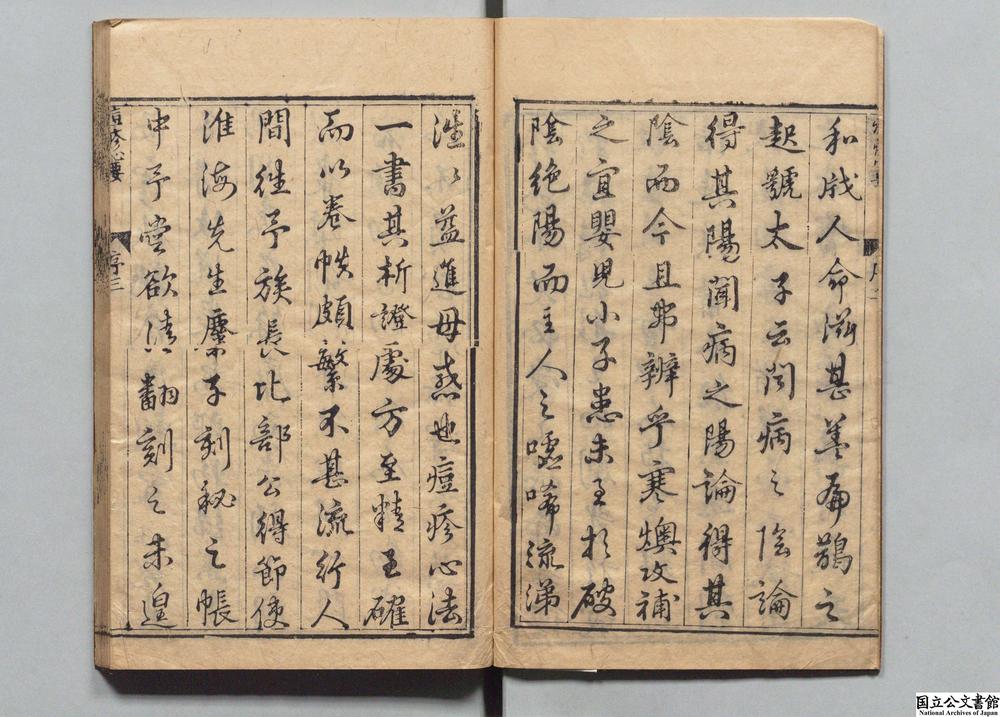 和戕人命滋甚蓋扁鵲之
起虢太子云聞病之陰論
得其陽聞病之陽論得其
陰而今且弗辨乎寒燠攻補
之宜嬰児小子患未至於破
陰絶陽而主人之噓唏流涕
淫以益進毋惑也痘疹心法
一書其析證處方至精至確
而以卷帙頗繁不甚流行人
間往予族長比部公得節使
淮海先生廩子刻秘之帳
中予嘗欲請翻刻之未遑
痘疹心要 序三
国立公文書館
National Archives of Japan